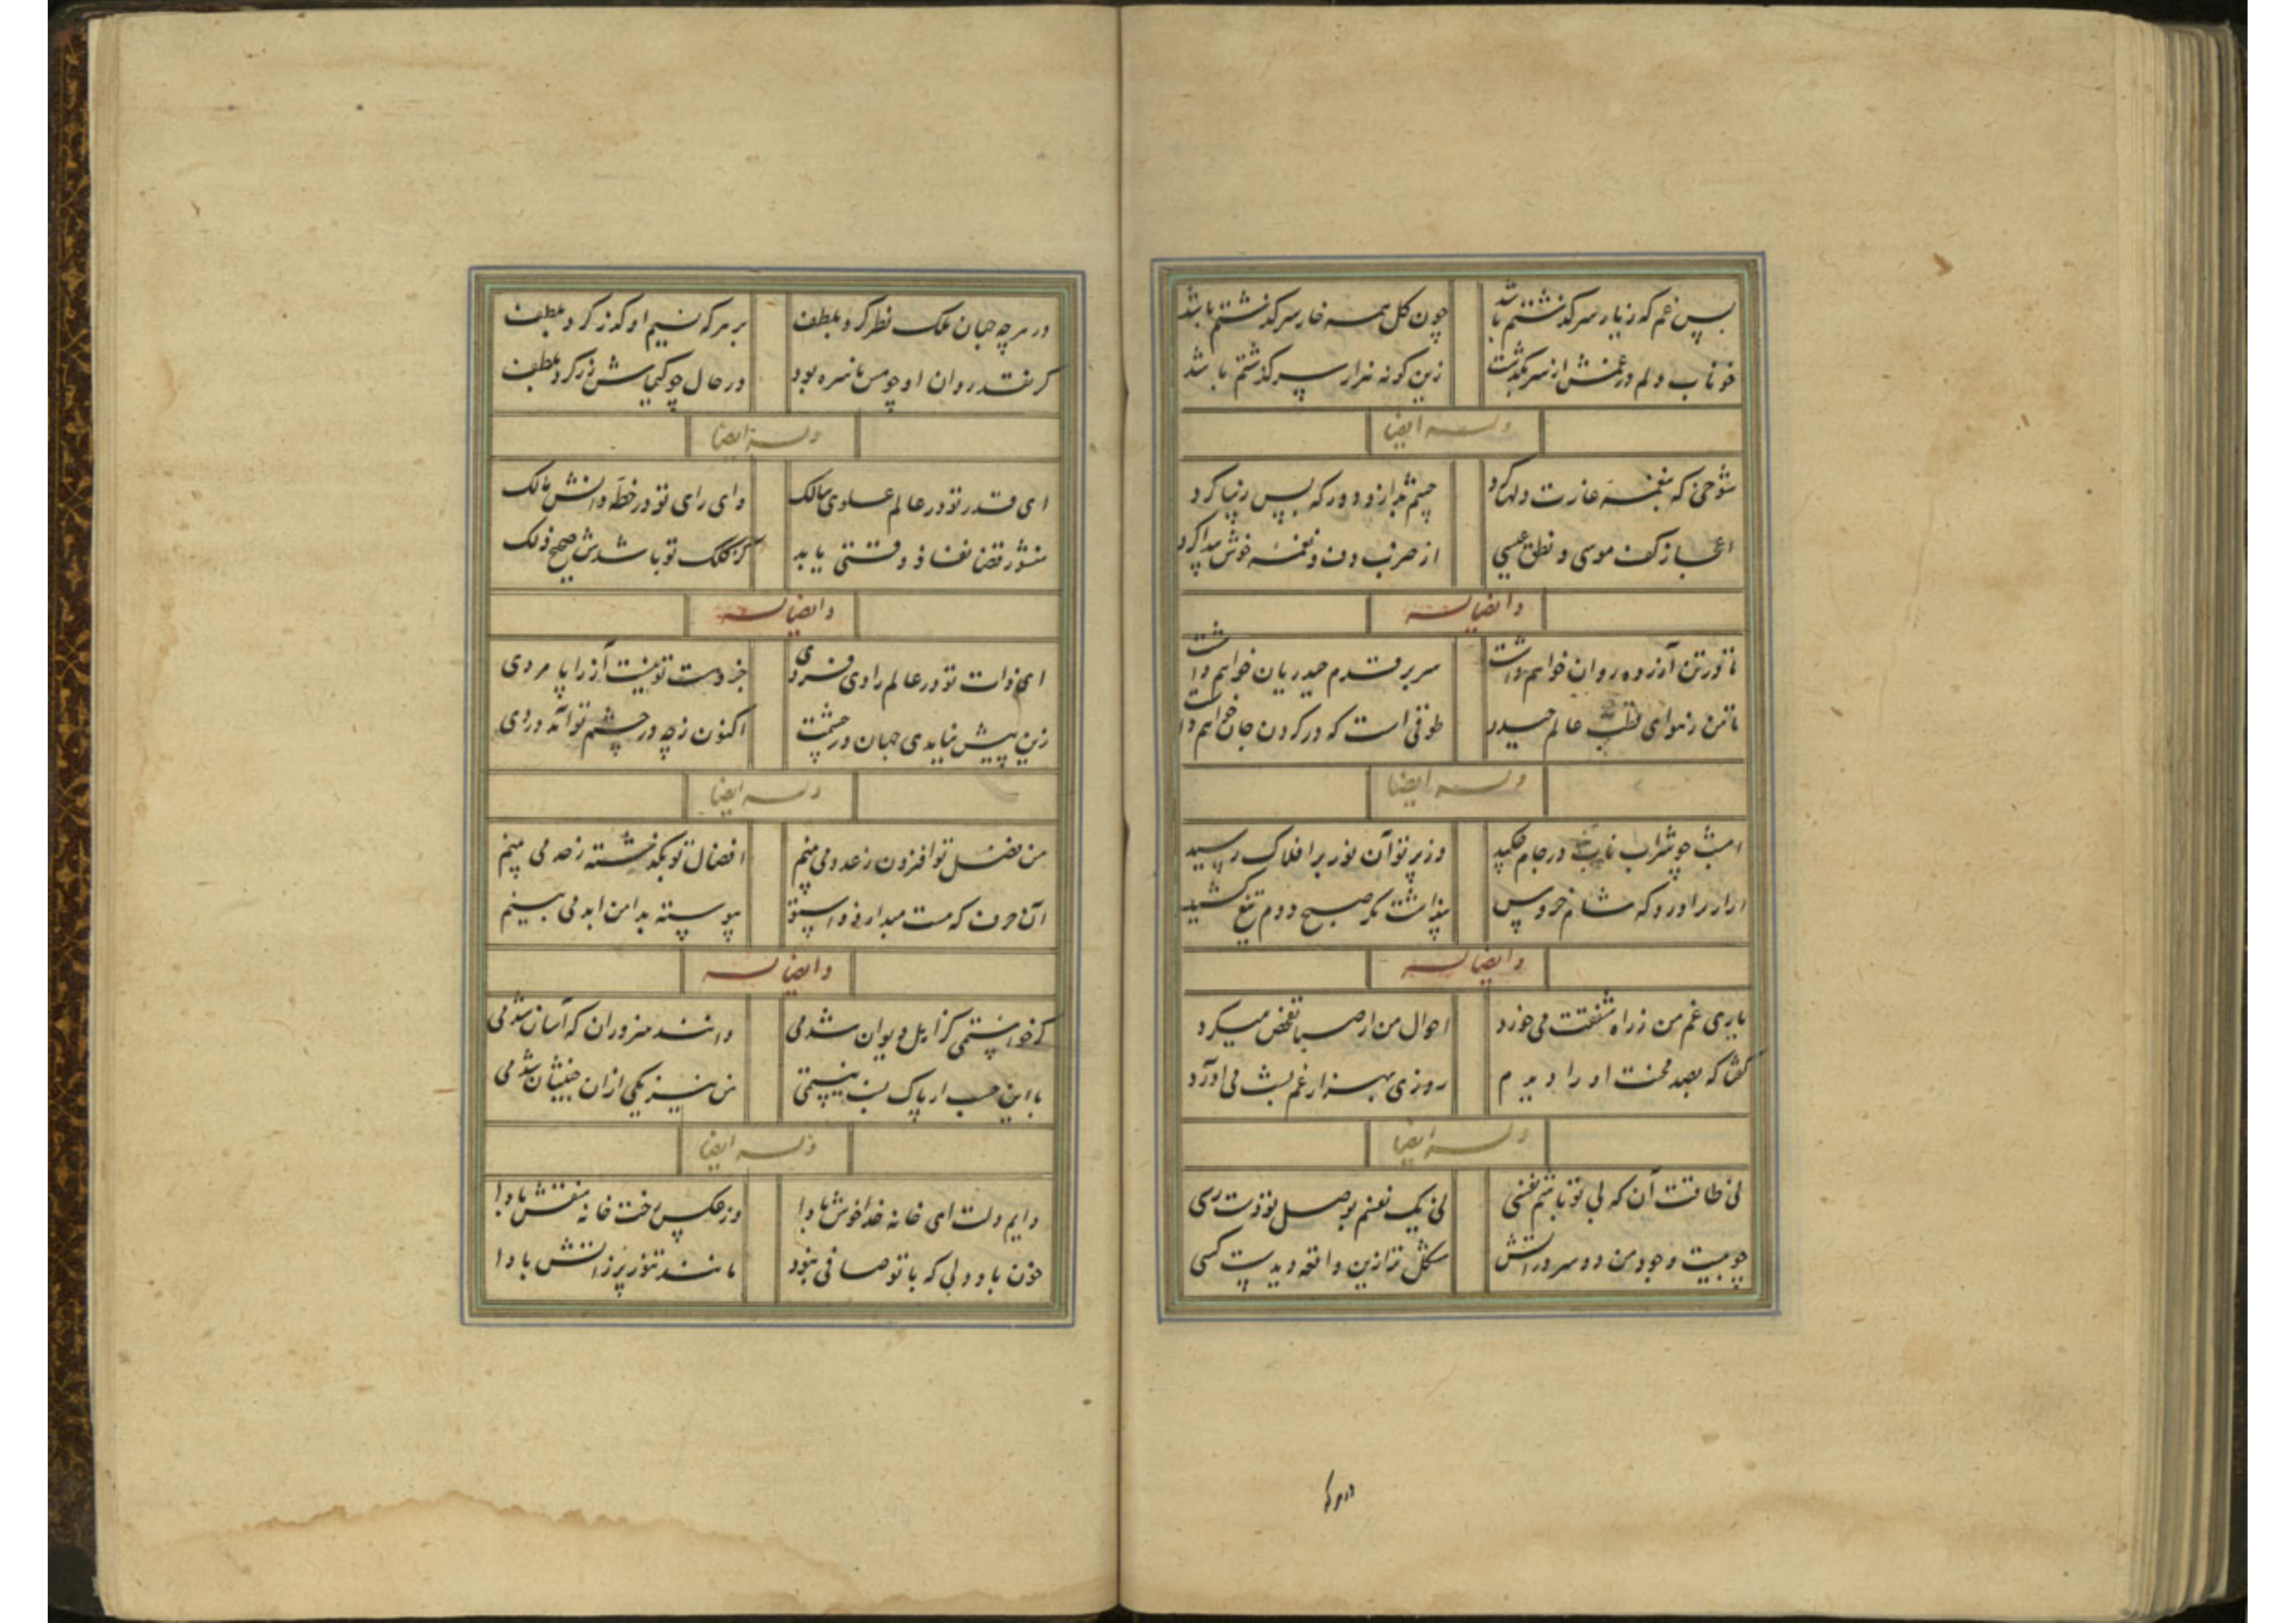 بس غم که زیاد سرگذشتم باشد
چون گل همه خار سرگذشتم باشد
خوناب دلم در غمش از سر بگذشت
زین گونه هزار سرگذشتم باشد
وله ایضا
شوخی که بغمزه غارت دلها کرد
چشم بد ازو دور که بس زیبا کرد
اعجاز کف موسی و نطق عیسی
از ضرب دف و نغمه خوش پیدا کرد
وایضا له
تا در تن آزرده روان خواهم داشت
سر بر قدم حیدریان خواهم داشت
تا من ز هوای قطب عالم حیدر
طوقی است که در گردن جان خواهم داشت
وله ایضا
امشب چو شراب ناب در جام چکید
وز پرتو آن نور بر افلاک رسید
آواز برآورد که خروس
پنداشت مگر صبح دوم تیغ کشید
وایضا له
یاری غم من ز راه شفقت می خورد
احوال من از صبا تفحص میکرد
گفتا که بصد محنت او را دیدم
روزی بهزار غم بشب می آورد
وله ایضا
نی طاقت آن که بی تو باشم نفسی
نی یک نفسم بوصل تو دست رسی
چوبیست وجود من دو سر در آتش
مشکل تر ازین واقعه دیدست کسی
در هر چه
در هر چه جهان ملک نظر کرد بلطف
بر هر که نسیم او گذر کرد بلطف
گر نقد روان او چو مس ناسره بود
در حال چو کیمیاش زر کرد بلطف
وله ایضا
ای قدر تو در عالم علوی سالک
وای رای تو در خطه دانش مالک
منشور قضا نفاذ وقتی یابد
کز کلک تو باشدش صح ذلک
وایضا له
ای ذات تو در عالم رادی فردی
جز دست تو نیست آز را پامردی
زین پیش نیامدی جهان در چشمت
اکنون ز چه در چشم تو آمد دردی
وله ایضا
من فضل تو افزون ز عدد می بینم
افضال تو بگذشته ز حد می بینم
آن حرف که هست مبدا
پیوسته بدامن ابد می بینم
وایضا له
گر خواستمی کز اهل دیوان شدمی
دانند هنروران که آسان شدمی
با این حسب ار پاک نسب نیستمی
من نیز یکی ازان خبیثان شدمی
وله ایضا
دایم دلت ای خانه خدا خوش بادا
وز عکس رخت خانه منقش بادا
خون باد دلی که با تو صافی نبود
مانند تنور پر ز آتش بادا